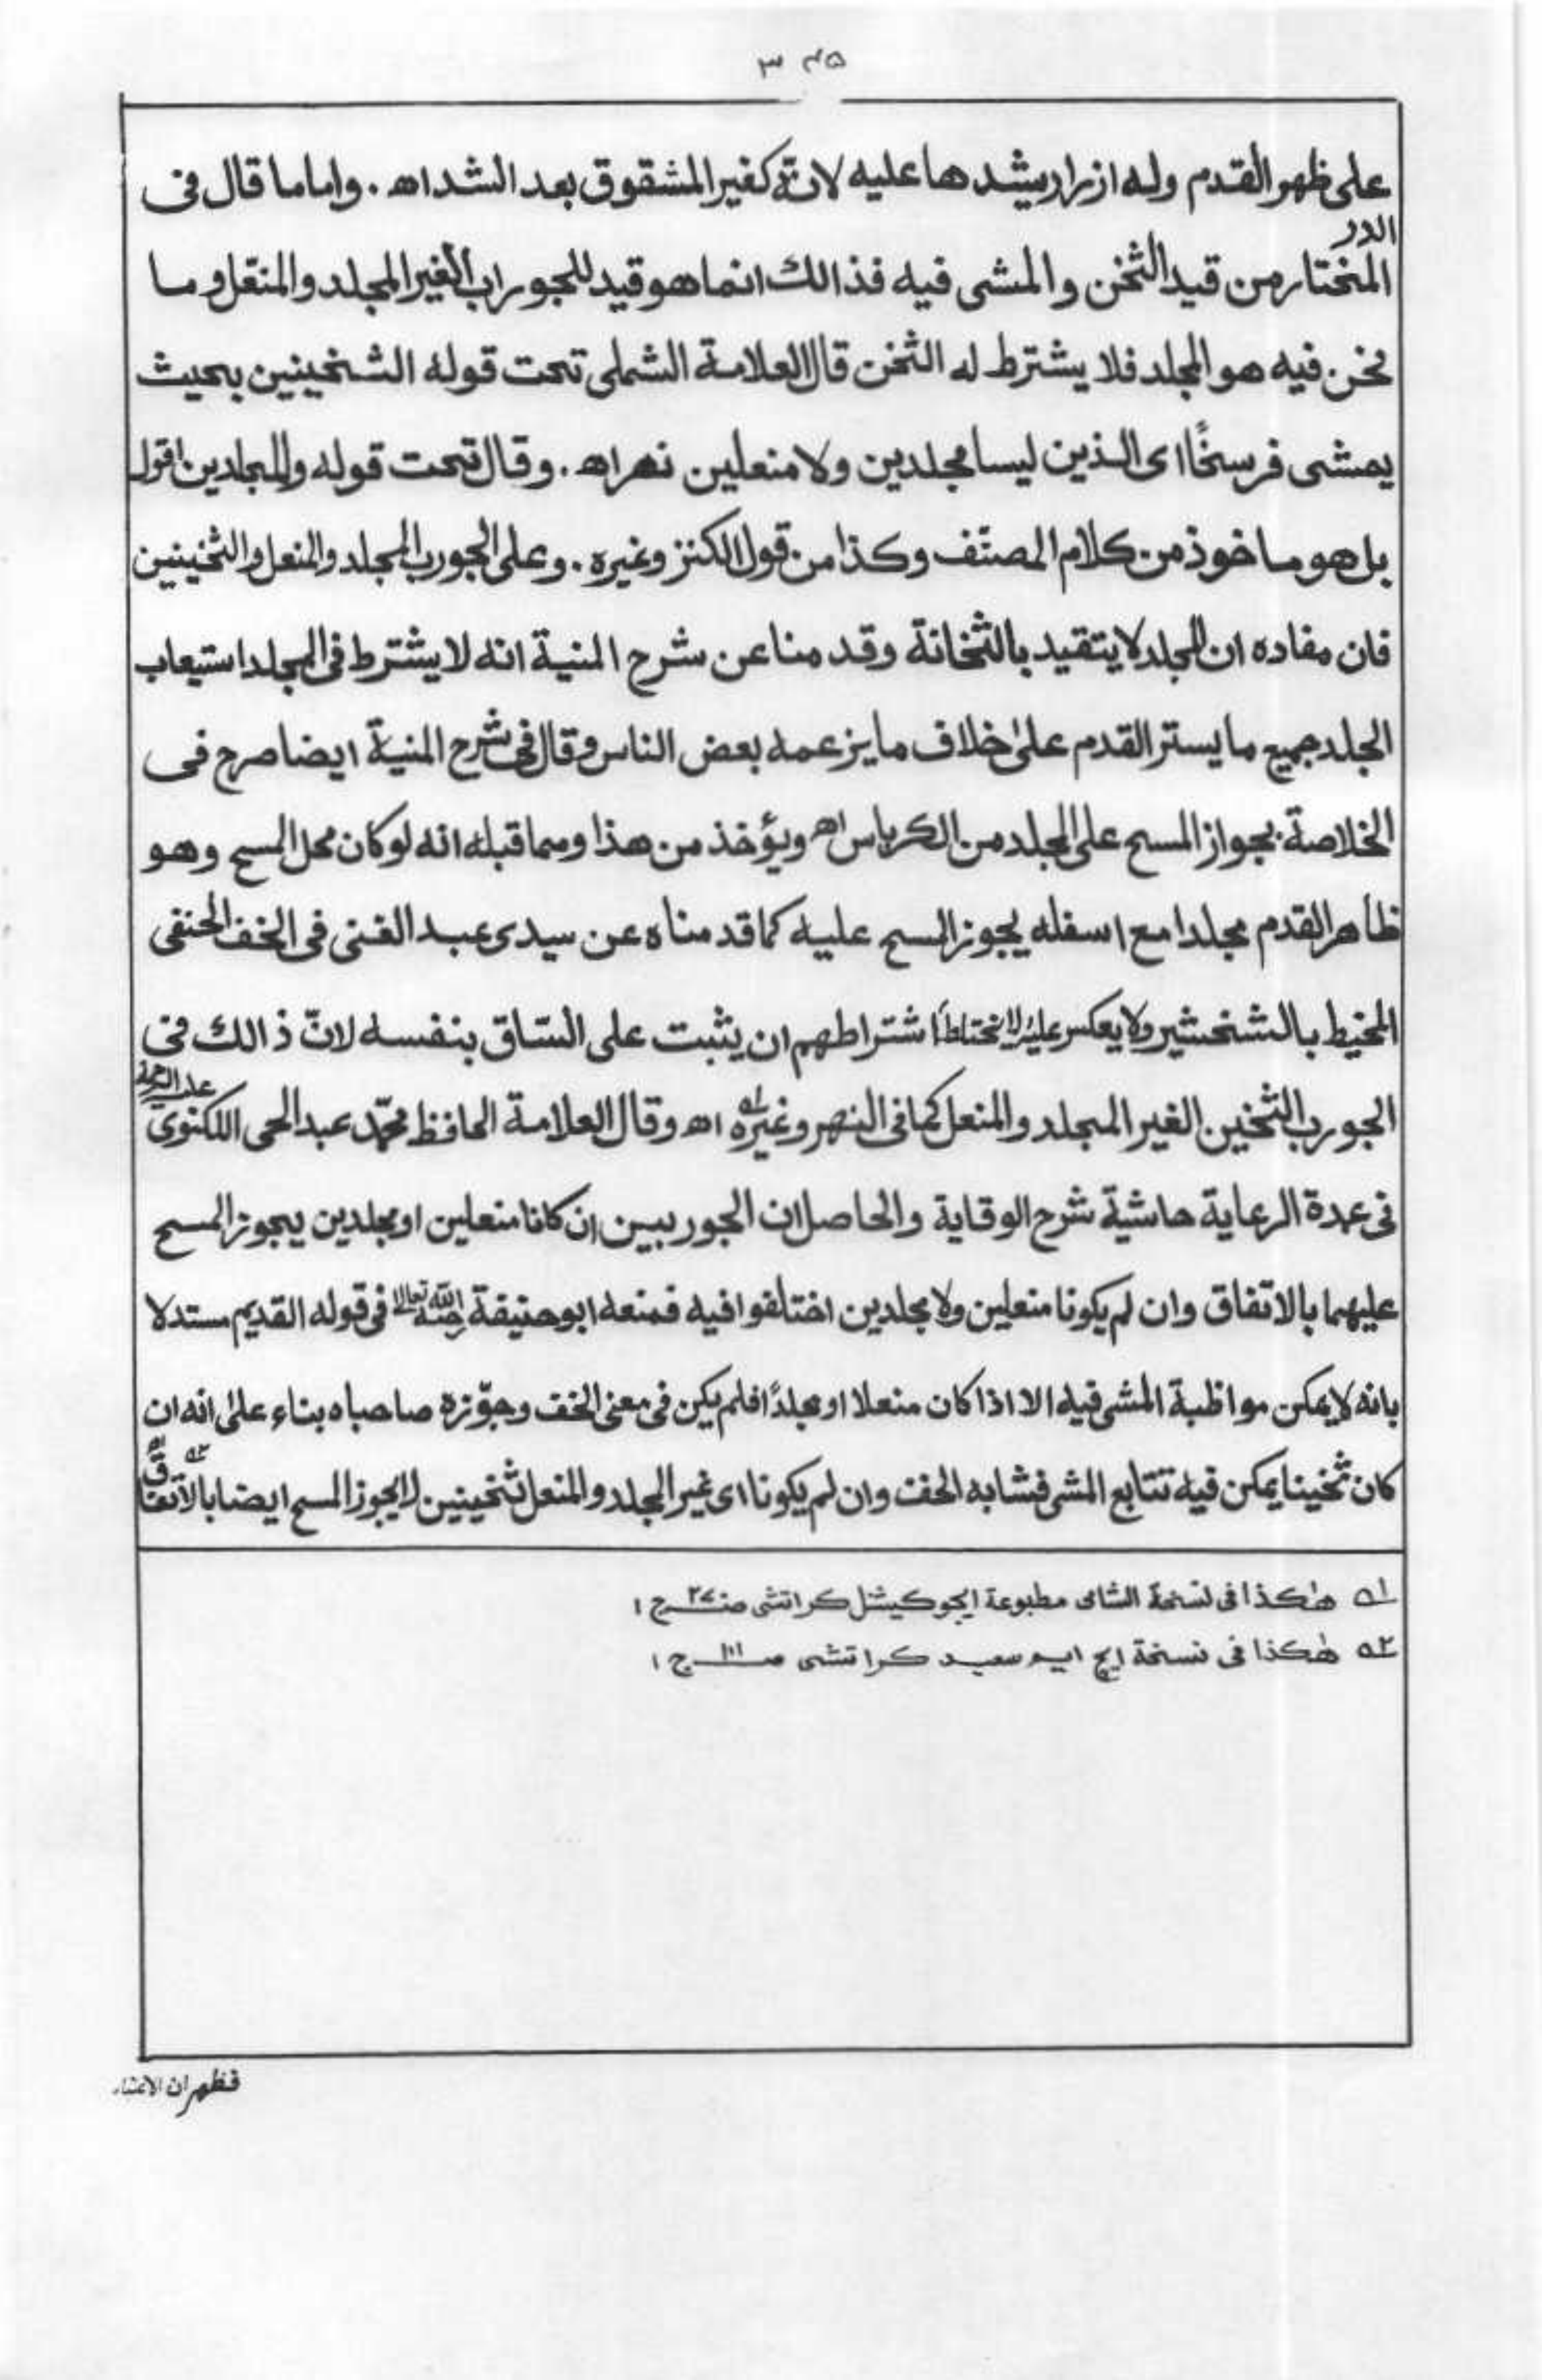 ۳۴۵
على ظهر القدم وله ازرار يشدها عليه لانّه كغير المشقوق بعد الشداه . واما ما قال فى
الدر
المختار من قيد الثخن والمشى فيه فذالك انما هو قيد للجوراب الغير المجلد والمنعل وما
نحن فيه هو المجلد فلا يشترط له الثخن قال العلامة الشملى تحت قوله الشخينين بحيث
يمشى فرسخًا اى الذين ليسا مجلدين ولا منعلين نهراه . وقال تحت قوله والمجلدين اقول
بل هو ماخوذ من كلام المصنّف وكذا من قول الكنز وغيره . وعلى الجورب المجلد والمنعل والثخينين
فان مفاده ان المجلد لا يتقيد بالثخانة وقدمنا عن شرح المنية انه لا يشترط فى المجلد استيعاب
الجلد جميع ما يستر القدم علىٰ خلاف ما يزعمه بعض الناس وقال فى شرح المنية ايضا صرح فى
الخلاصة بجواز المسح على المجلد من الكرباس اه ويؤخذ من هذا ومما قبله انه لو كان محل المسح وهو
ظاهر القدم مجلدا مع اسفله يجوز المسح عليه كما قدمناه عن سيدى عبد الغنى فى الخف الحنفى
المخيط بالشخشير ولا يعكر عليه اشتراطهم ان يثبت على السّاق بنفسه لانّ ذالك فى
الجورب الثخين الغير المجلد والمنعل كما فى النهر وغيره اه وقال العلامة الحافظ محمّد عبد الحى اللكنوى
عليه الرحمة
فى عمدة الرعاية حاشية شرح الوقاية والحاصل ان الجوربين ان كانا منعلين او مجلدين يجوز المسح
عليهما بالاتفاق وان لم يكونا منعلين ولا مجلدين اختلفوا فيه فمنعه ابو حنيفة رضى الله تعالىٰ عنه فى قوله القديم مستدلا
بانه لا يمكن مواظبة المشى فيه الا اذا كان منعلا او مجلدًا فلم يكن فى معنى الخف وجوّزه صاحباه بناء علىٰ انه ان
كان ثخينا يمكن فيه تتابع المشى فشابه الخف وان لم يكونا اى غير المجلد والمنعل ثخينين لا يجوز المسح ايضا بالاتفاق
۱ه هٰكذا فى نسخة الشامى مطبوعة ايجوكيشنل كراتشى صـ ج ۱
۲ه هٰكذا فى نسخة ايچ ايم سعيد كراتشى صـ۱۱۱ ج ۱
فظهر ان الاعتناء